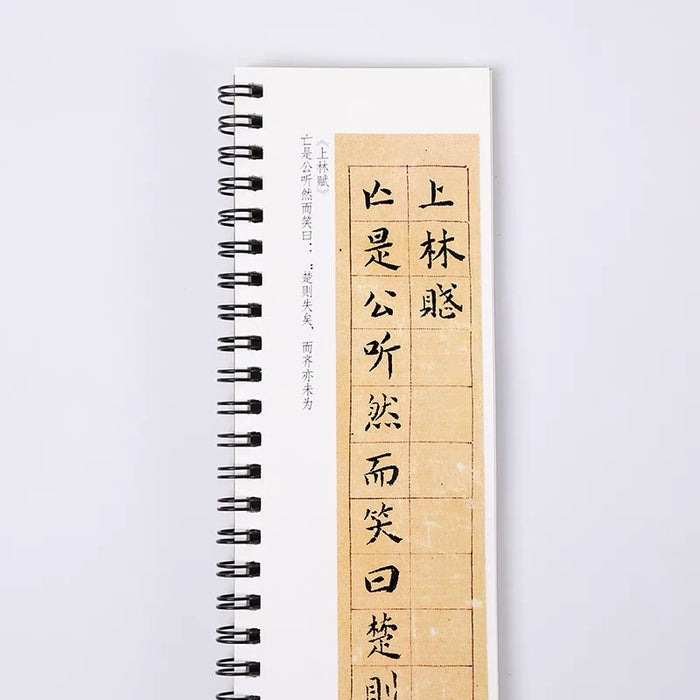 上林賦
亡是公听然而笑曰楚則
《上林赋》
亡是公听然而笑曰：：楚则失矣、而齐亦未为